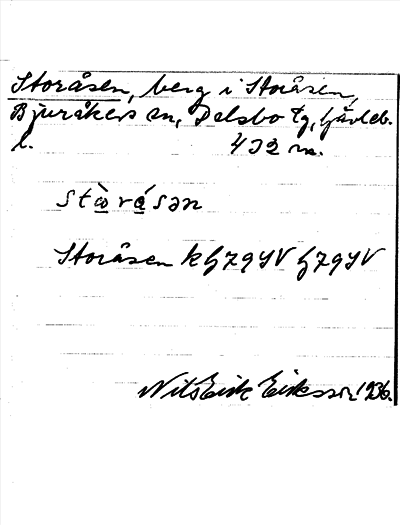 Storåsen, berg i Storåsen,
Bjuråkers sn, Delsbo tg, Gävleb.
l. 432 m.
stò̱rá̱sən
Storåsen k G79SV G79SV
Nils Erik Eriksson 1936.